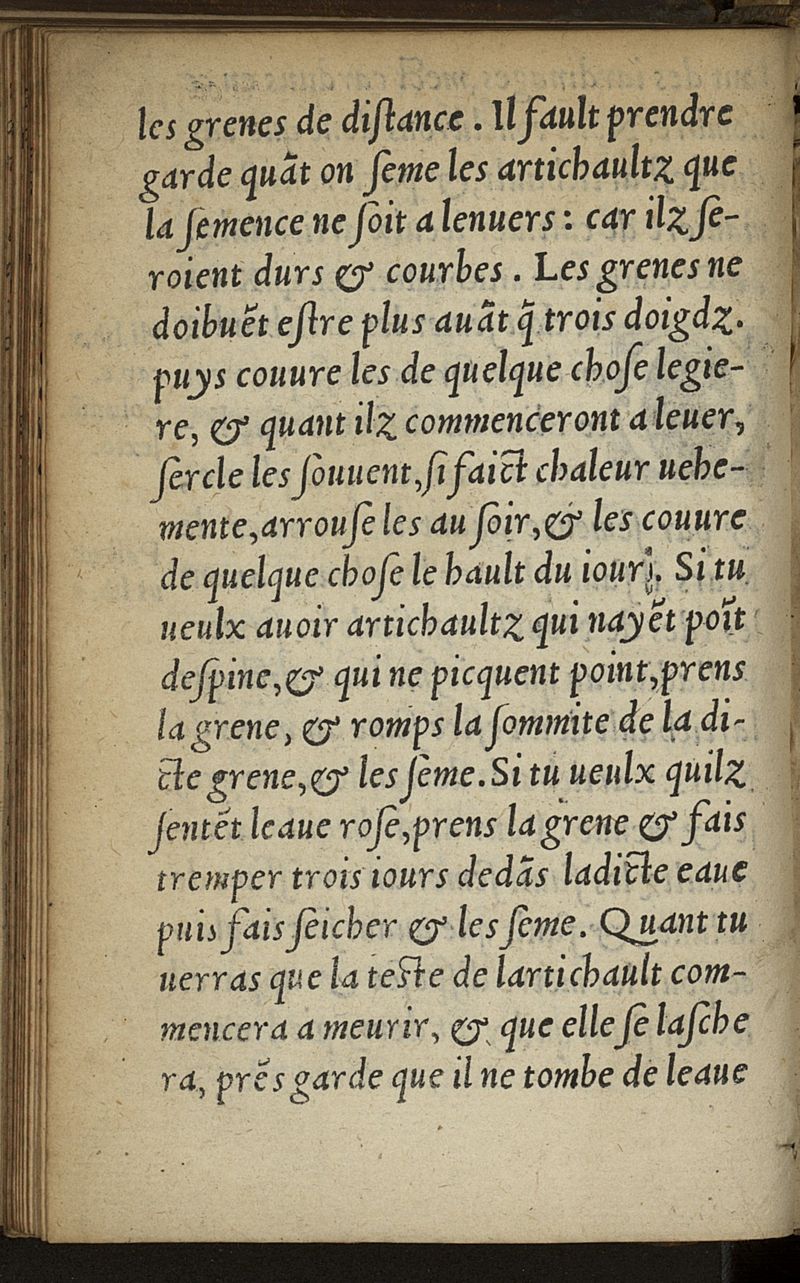 les grenes de diſtance . Il fault prendre
garde quãt on ſeme les artichaultz que
la ſemence ne ſoit a lenuers : car ilz ſe-
roient durs & courbes . Les grenes ne
doibuẽt eſtre plus auãt q̃ trois doigdz.
puys couure les de quelque choſe legie-
re, & quant ilz commenceront a leuer,
ſercle les ſouuent, ſi faict chaleur uehe-
mente, arrouſe les au ſoir, & les couure
de quelque choſe le hault du iour. Si tu
ueulx auoir artichaultz qui nayẽt poĩt
deſpine, & qui ne picquent point, prens
la grene, & romps la ſommite de la di-
cte grene, & les ſeme. Si tu ueulx quilz
ſentẽt leaue roſe, prens la grene & fais
tremper trois iours dedãs ladicte eaue
puis fais ſeicher & les ſeme. Quant tu
uerras que la teſte de lartichault com-
mencera a meurir, & que elle ſe laſche
ra, prẽs garde que il ne tombe de leaue